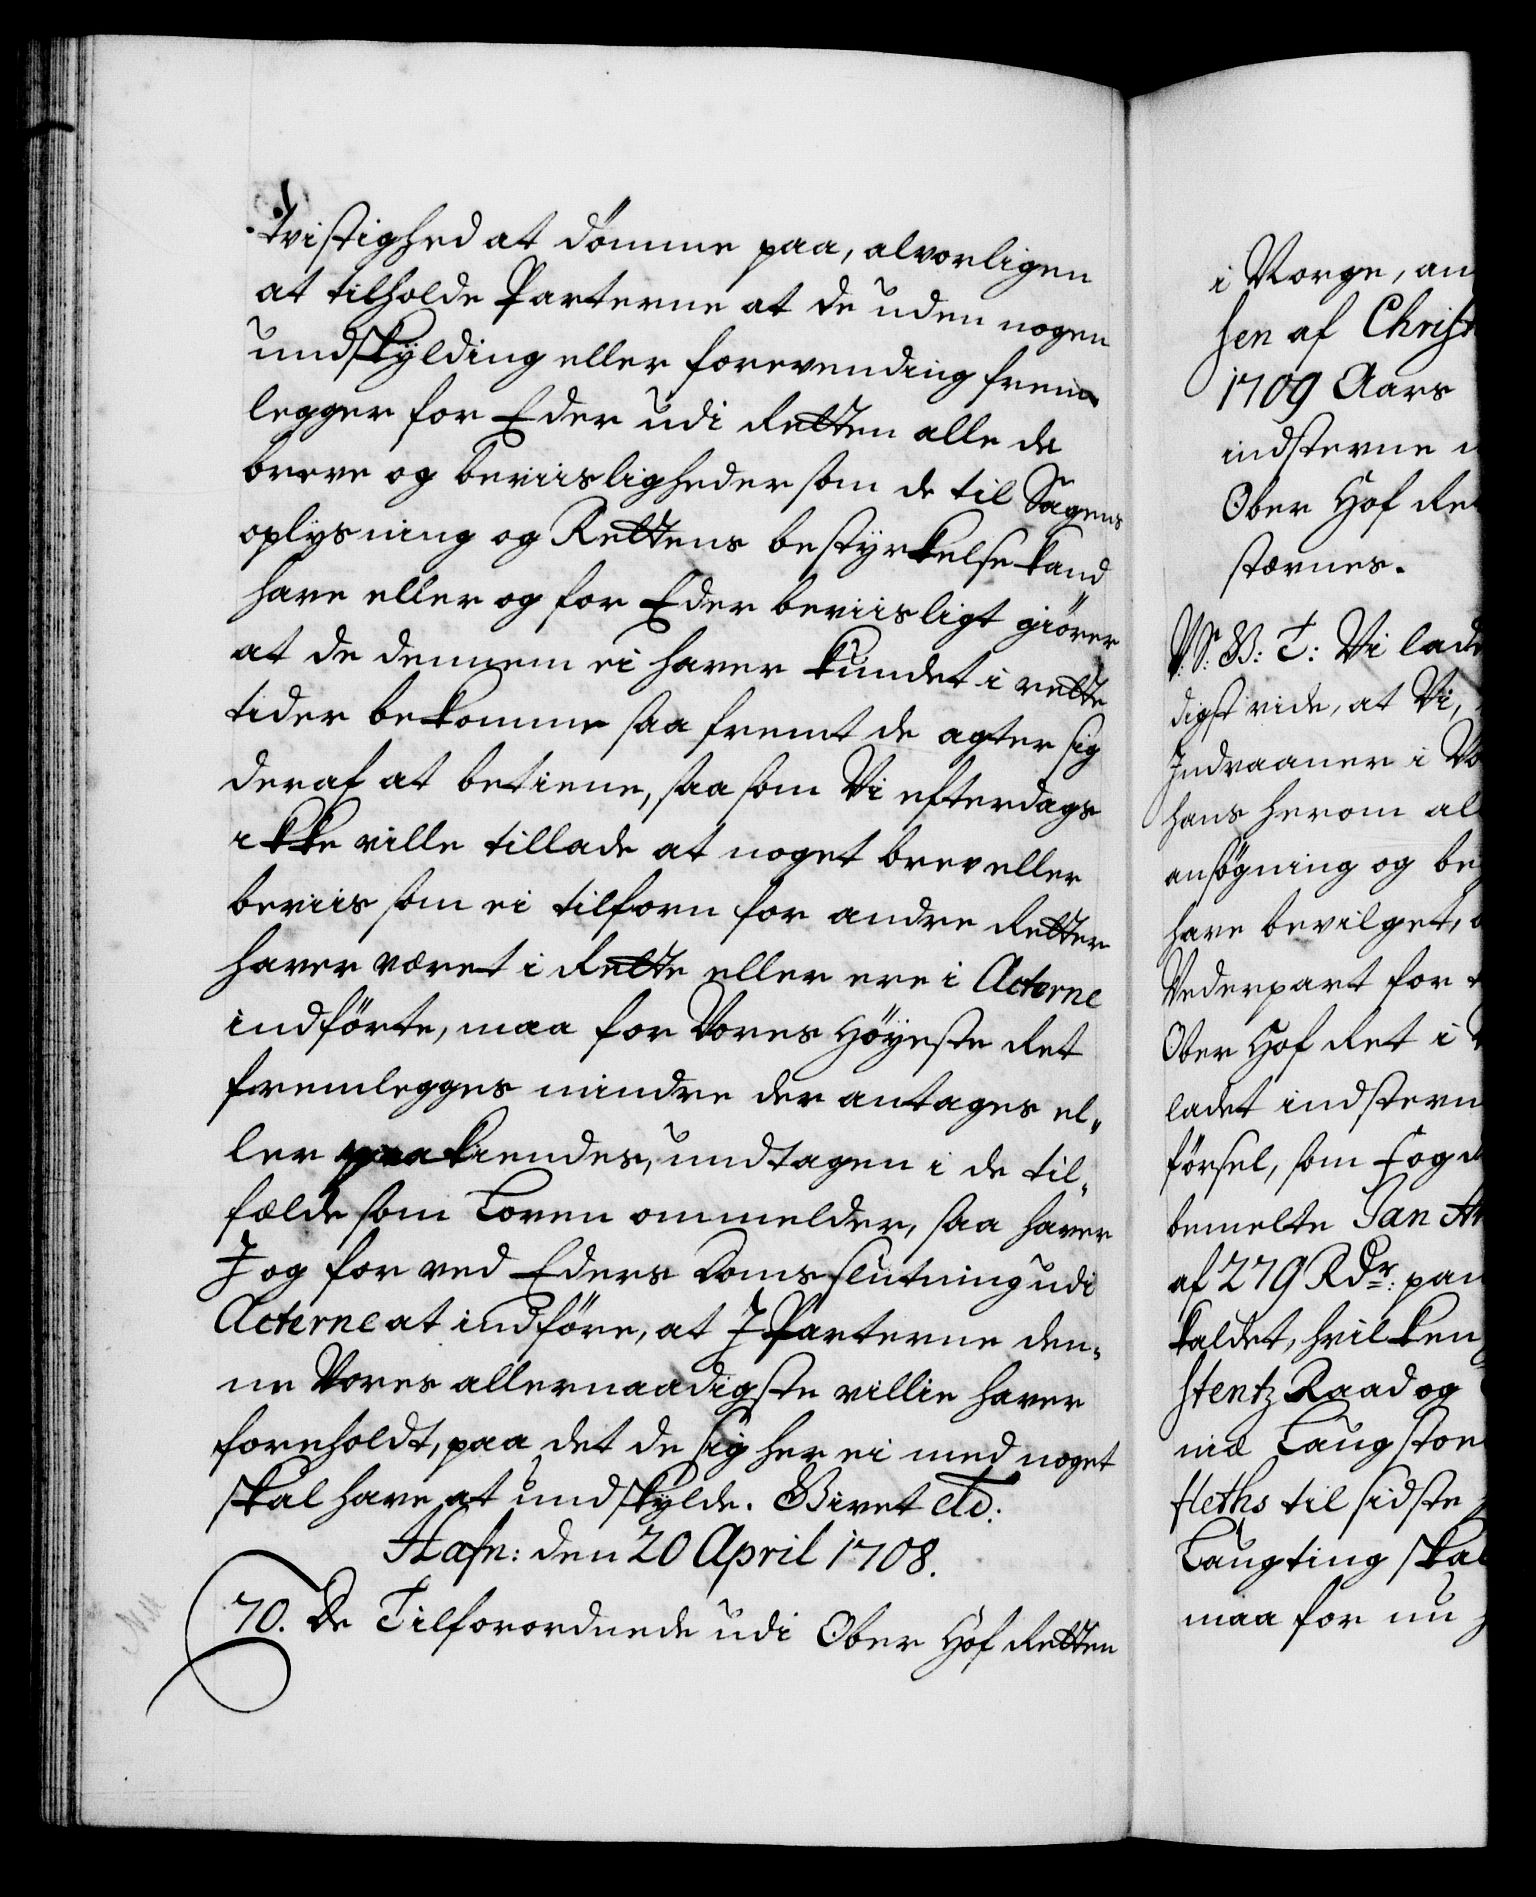 tvistighed at dømme paa, alvorligen
at tilholde Parterne at de uden nogen
undskylding eller forevending frem
legger for Eder udi Retten alle de
breve og beviisligheder som de til Sagens
oplysning og Rettens bestyrkelse kand
have eller og for Eder beviisligt giører
at de dennem ei haver kundet i rette
tider bekomme saa fremt de agter sig
deraf at betiene, saa som Vi efterdags
ikke ville tillade at noget brev eller
beviis som ei tilforn for andre Retter
haver været i Rette eller ere i Acterne
indførte, maa for Vores Høyeste Ret
fremlegges mindre der antages el„
ler paakiendes, undtagen i de til„
fælde som Loven ommelder, saa haver
I og for ved Eders Domsslutning udi
Acterne at indføre, at I Parterne den„
ne Vores allernaadigste villie haver
foreholdt, paa det de sig her ei med noget
skal have at undskylde. Givet etc:
Hafn: den 20 April 1708.
70. De Tilforordnede udi Ober Hof Retten
i Norge, an
sen af Christ
1709 Aars
indsterne
Ober Hof Ret
stævnes.
V: S: G: T: Vi lade
digst vide, at Vi,
Indvaaner i
hans herom al
ansøgning og be
have bevilget,
Vederpart for
Ober Hof Ret i
ladet indstern
førsel, som
bemelte Jan
af 279 Rdr: paa
kaldet, hvilken
stentz Raad og
niæ Laugstoe
fleths til sidste
Laugting skal
maa for nu